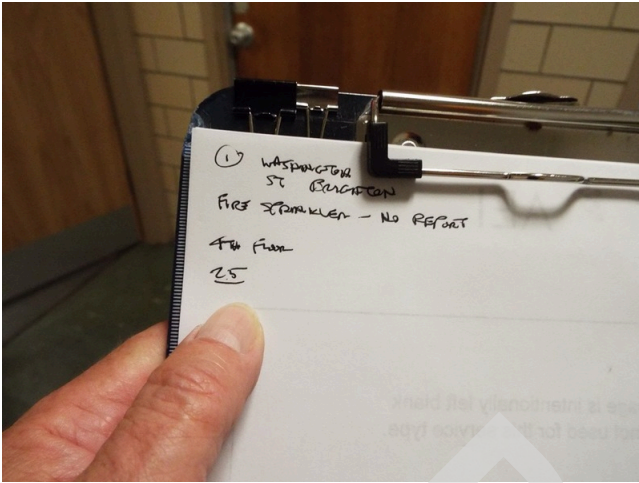 ① WASHINGTON
ST BRIGHTON
FIRE SPRINKLER - NO REPORT
4TH FLOOR
25
age is intentionally left blank
not used for this service type.